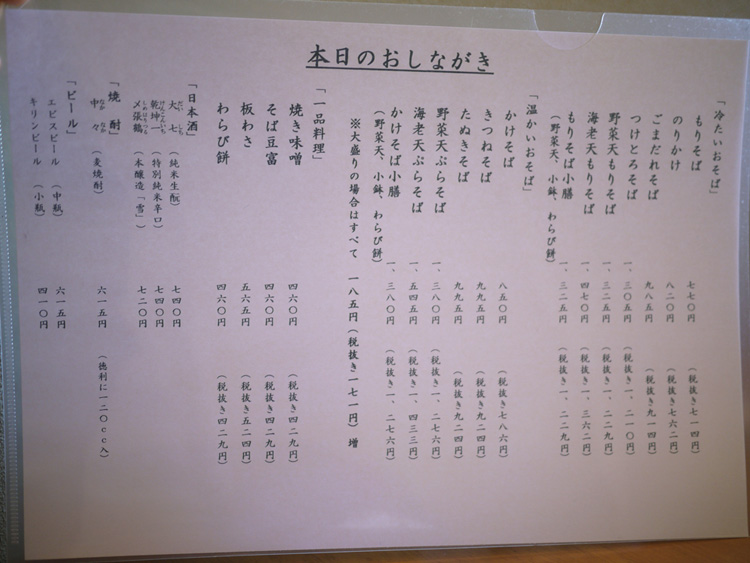 本日のおしながき
「冷たいおそば」
もりそば 七七〇円 (税抜き七一四円)
のりかけ 八二〇円 (税抜き七六二円)
ごまだれそば 九八五円 (税抜き九一四円)
つけとろそば 一、三〇五円 (税抜き一、二一〇円)
野菜天もりそば 一、三二五円 (税抜き一、二二九円)
海老天もりそば 一、四七〇円 (税抜き一、三六二円)
もりそば小膳 一、三二五円 (税抜き一、二二九円)
(野菜天、小鉢、わらび餅)
「温かいおそば」
かけそば 八五〇円 (税抜き七八六円)
きつねそば 九九五円 (税抜き九二四円)
たぬきそば 九九五円 (税抜き九二四円)
野菜天ぷらそば 一、三八〇円 (税抜き一、二七六円)
海老天ぷらそば 一、五四五円 (税抜き一、四三三円)
かけそば小膳 一、三八〇円 (税抜き一、二七六円)
(野菜天、小鉢、わらび餅)
※大盛りの場合はすべて 一八五円(税抜き一七一円) 増
「一品料理」
焼き味噌 四六〇円 (税抜き四二九円)
そば豆富 四六〇円 (税抜き四二九円)
板わさ 五六五円 (税抜き五二四円)
わらび餅 四六〇円 (税抜き四二九円)
「日本酒」
大七 (純米生酛) 七四〇円
乾坤一 (特別純米辛口) 七四〇円
〆張鶴 (本醸造「雪」) 七二〇円
「焼酎」
中々 (麦焼酎) 六一五円 (徳利に一二〇cc入)
「ビール」
エビスビール (中瓶) 六一五円
キリンビール (小瓶) 四一〇円